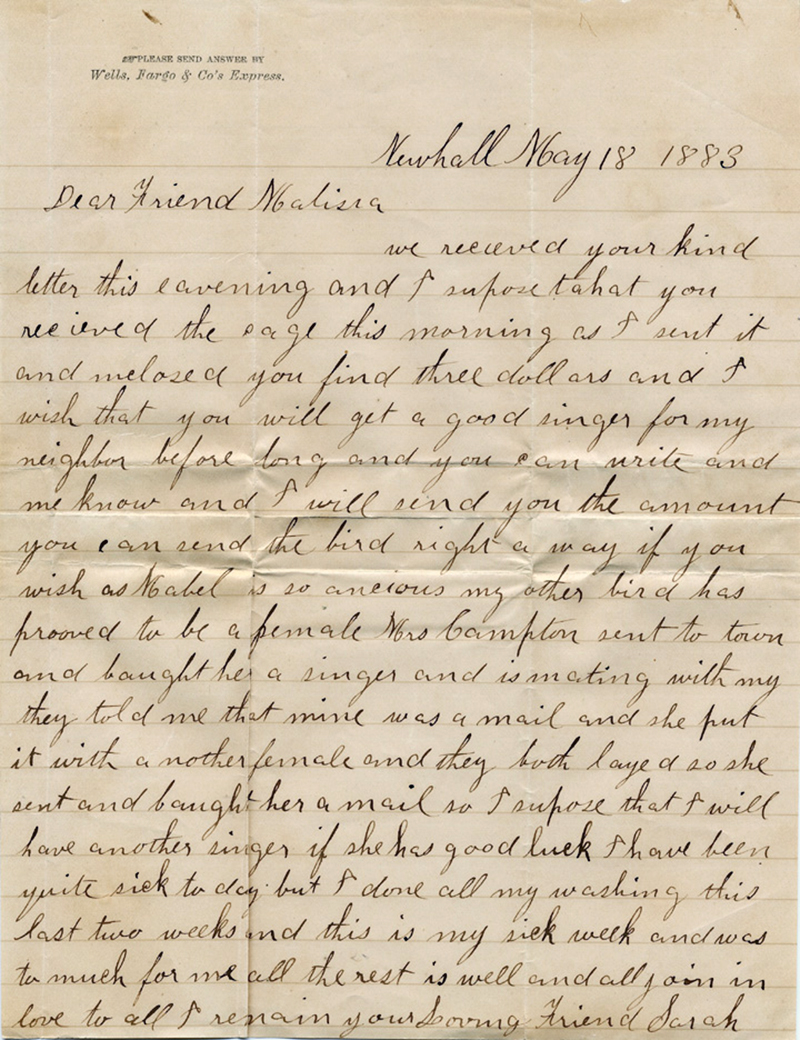 ☞PLEASE SEND ANSWER BY
Wells, Fargo & Co's Express.
Newhall May 18 1883
Dear Friend Malissa
we recieved your kind
letter this eavening and I supose tahat you
recieved the cage this morning as I sent it
and inclosed you find three dollars and I
wish that you will get a good singer for my
neighbor before long and you can write and
me know and I will send you the amount
you can send the bird right a way if you
wish as Mabel is so ancious my other bird has
prooved to be a female Mrs Campton sent to town
and baught her a singer and is mating with my
they told me that mine was a mail and she put
it with a nother female and they both layed so she
sent and baught her a mail so I supose that I will
have another singer if she has good luck I have been
quite sick to day but I done all my washing this
last two weeks and this is my sick week and was
to much for me all the rest is well and all join in
love to all I remain your Loving Friend Sarah